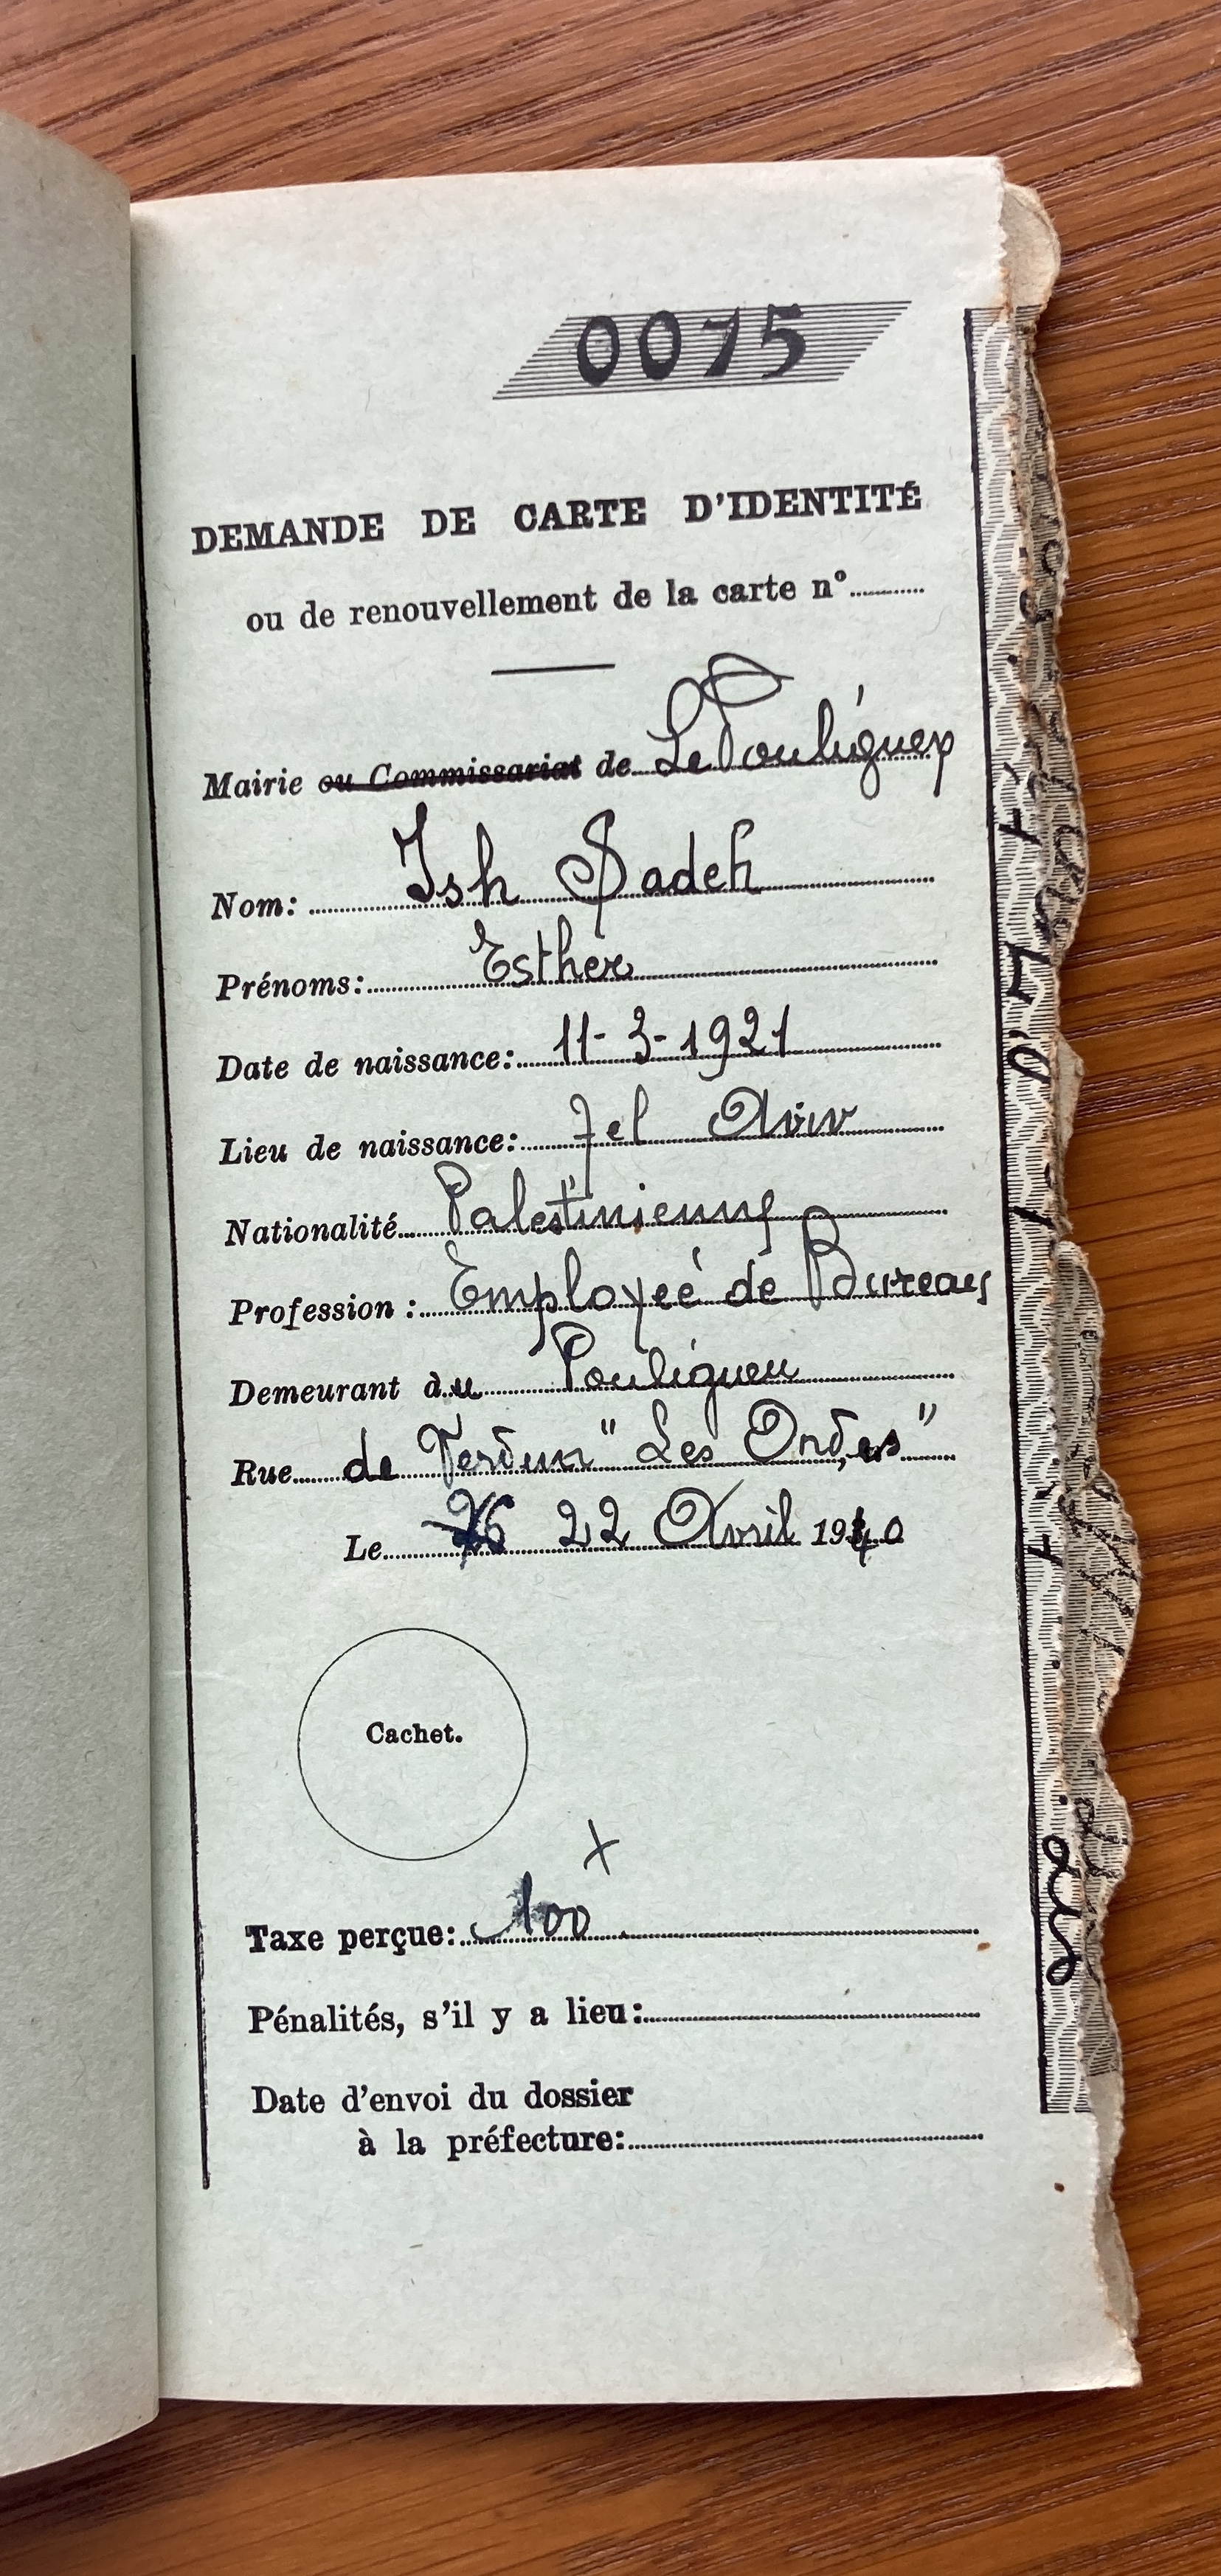 0075
DEMANDE DE CARTE D'IDENTITÉ
ou de renouvellement de la carte n°
Mairie ou Commissariat de Le Pouliguen
Nom: Ish Sadeh
Prénoms: Esther
Date de naissance: 11-3-1921
Lieu de naissance: Tel Aviv
Nationalité Palestinienne
Profession: Employeé de Bureau
Demeurant àu Pouliguen
Rue de Verdun "Les Ondes"
Le 22 Avril 1940
Cachet.
Taxe perçue: 100
Pénalités, s'il y a lieu:
Date d'envoi du dossier
à la préfecture: